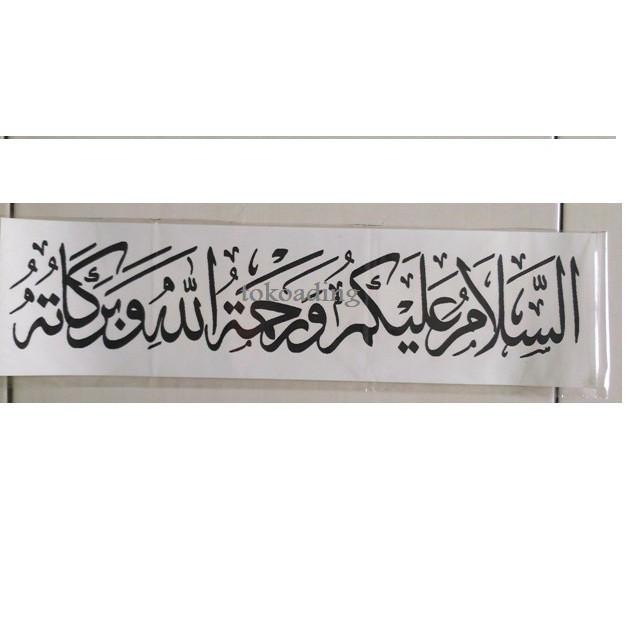 السَّلَامُ عَلَيْكُمْ وَرَحْمَةُ اللهِ وَبَرَكَاتُهُ
tokoading